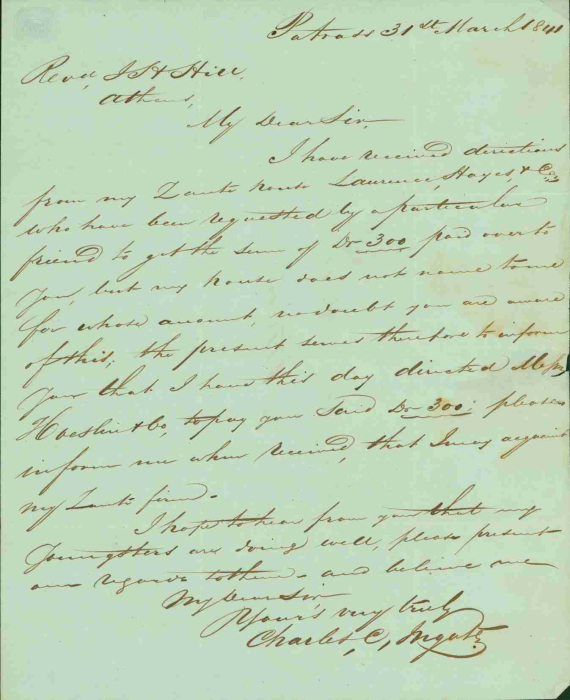 Patrass 31st March 1841
Revd, J H Hill,
Athens,
My Dear Sir,
I have received directions
from my Zante house Laurence, Hayes, & Co,
who have been requested by a particular
friend to get the sum of Dr 300 paid over to
you, but my house does not name to me
for whose account, no doubt you are aware
of this; the present serves therefore to inform
you that I have this day directed Messrs
Hoeslin & Co, to pay you said Dr 300; please
inform me when received, that I may acquaint
my Zante firm.
I hope to hear from you that my
Youngsters are doing well, please present
our regards to them - and believe me
My Dear Sir
Your's very truly
Charles, C,